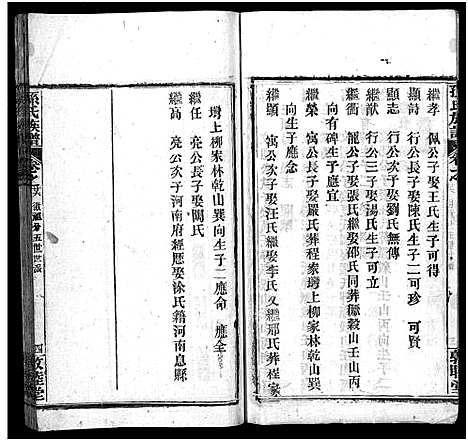 繼孝 佩公子娶王氏生子可得
顯詩 行公長子娶陳氏生子二可珍 可賢
顯志 行公次子娶劉氏無傳
繼猷 行公三子娶湯氏生子可立
繼衢 龍公子娶張氏繼娶邵氏同葬 穀山壬山丙
向有碑生子應宜
繼榮 寓公長子娶嚴氏葬程家塆上柳家林乾山巽
向生子應念
繼顯 寓公次子娶汪氏繼娶李氏又繼邢氏葬程家
塆上柳家林乾山巽向生子二應命 應全
繼任 亮公長子娶關氏
繼高 亮公次子河南府經歷娶涂氏籍河南息縣
孫氏族譜
五世世派
四 敦睦堂
孫氏族譜
敦睦堂